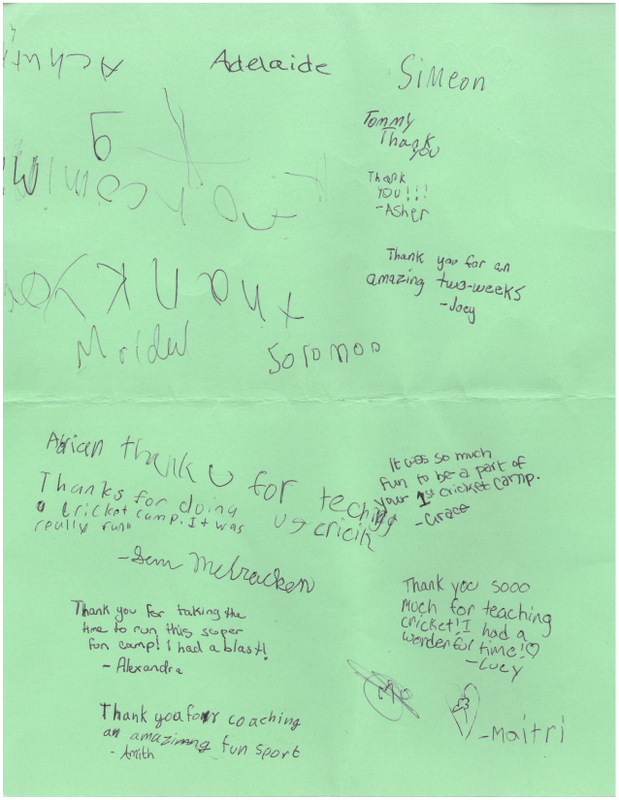 Adelaide
Simeon
Tommy
Thank
you
Thank
YOU!!!
-Asher
Thank you for an
amazing two-weeks
-Joey
thank you
Solomon
Adrian thank U for teching
us cricik
It was so much
fun to be a part of
your 1st cricket camp.
-Grace
Thanks for doing
a cricket camp. It was
really fun
-Sam McCracken
Thank you sooo
much for teaching
cricket! I had a
wonderful time!♡
-Lucy
Thank you for taking the
time to run this super
fun camp! I had a blast!
- Alexandra
Thank you for coaching
an amazimng fun sport
- Amith
-Maitri